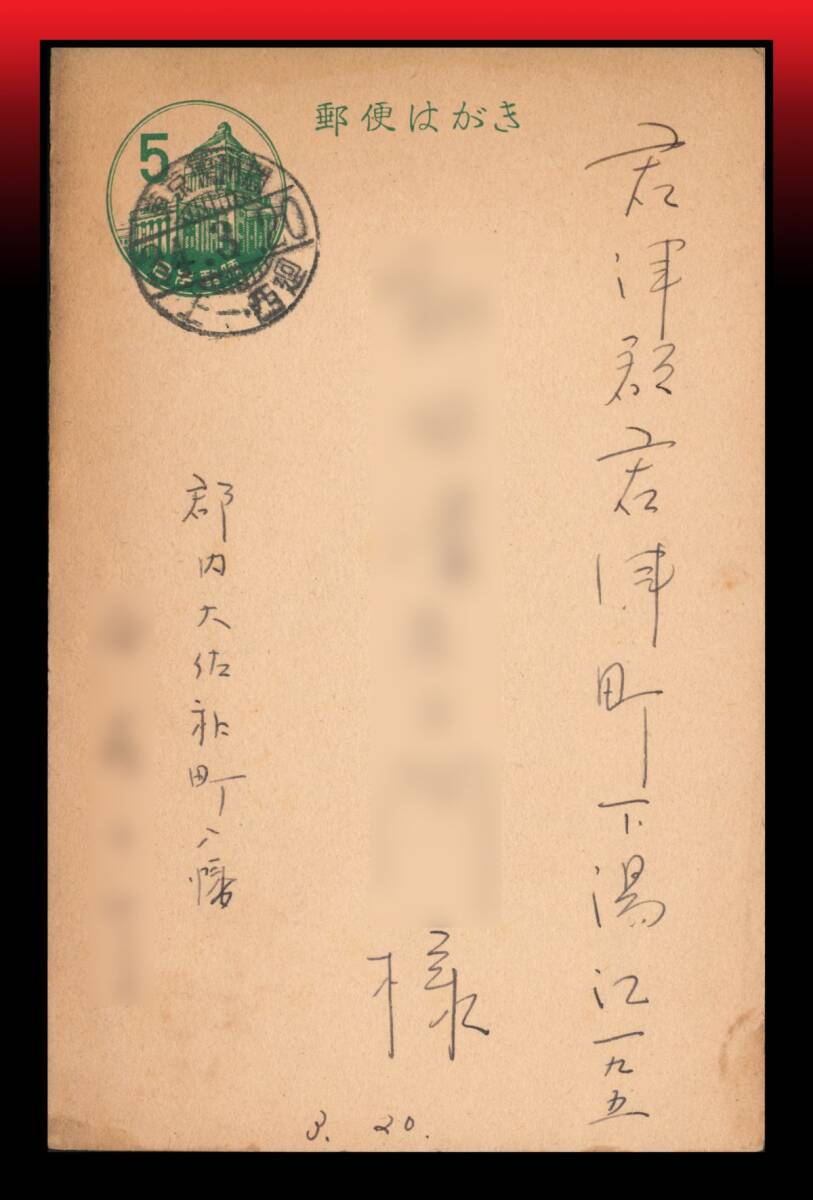 郵便はがき
5
君津郡君津町下湯江一九五
様
郡内大佐和町八幡
3. 20.